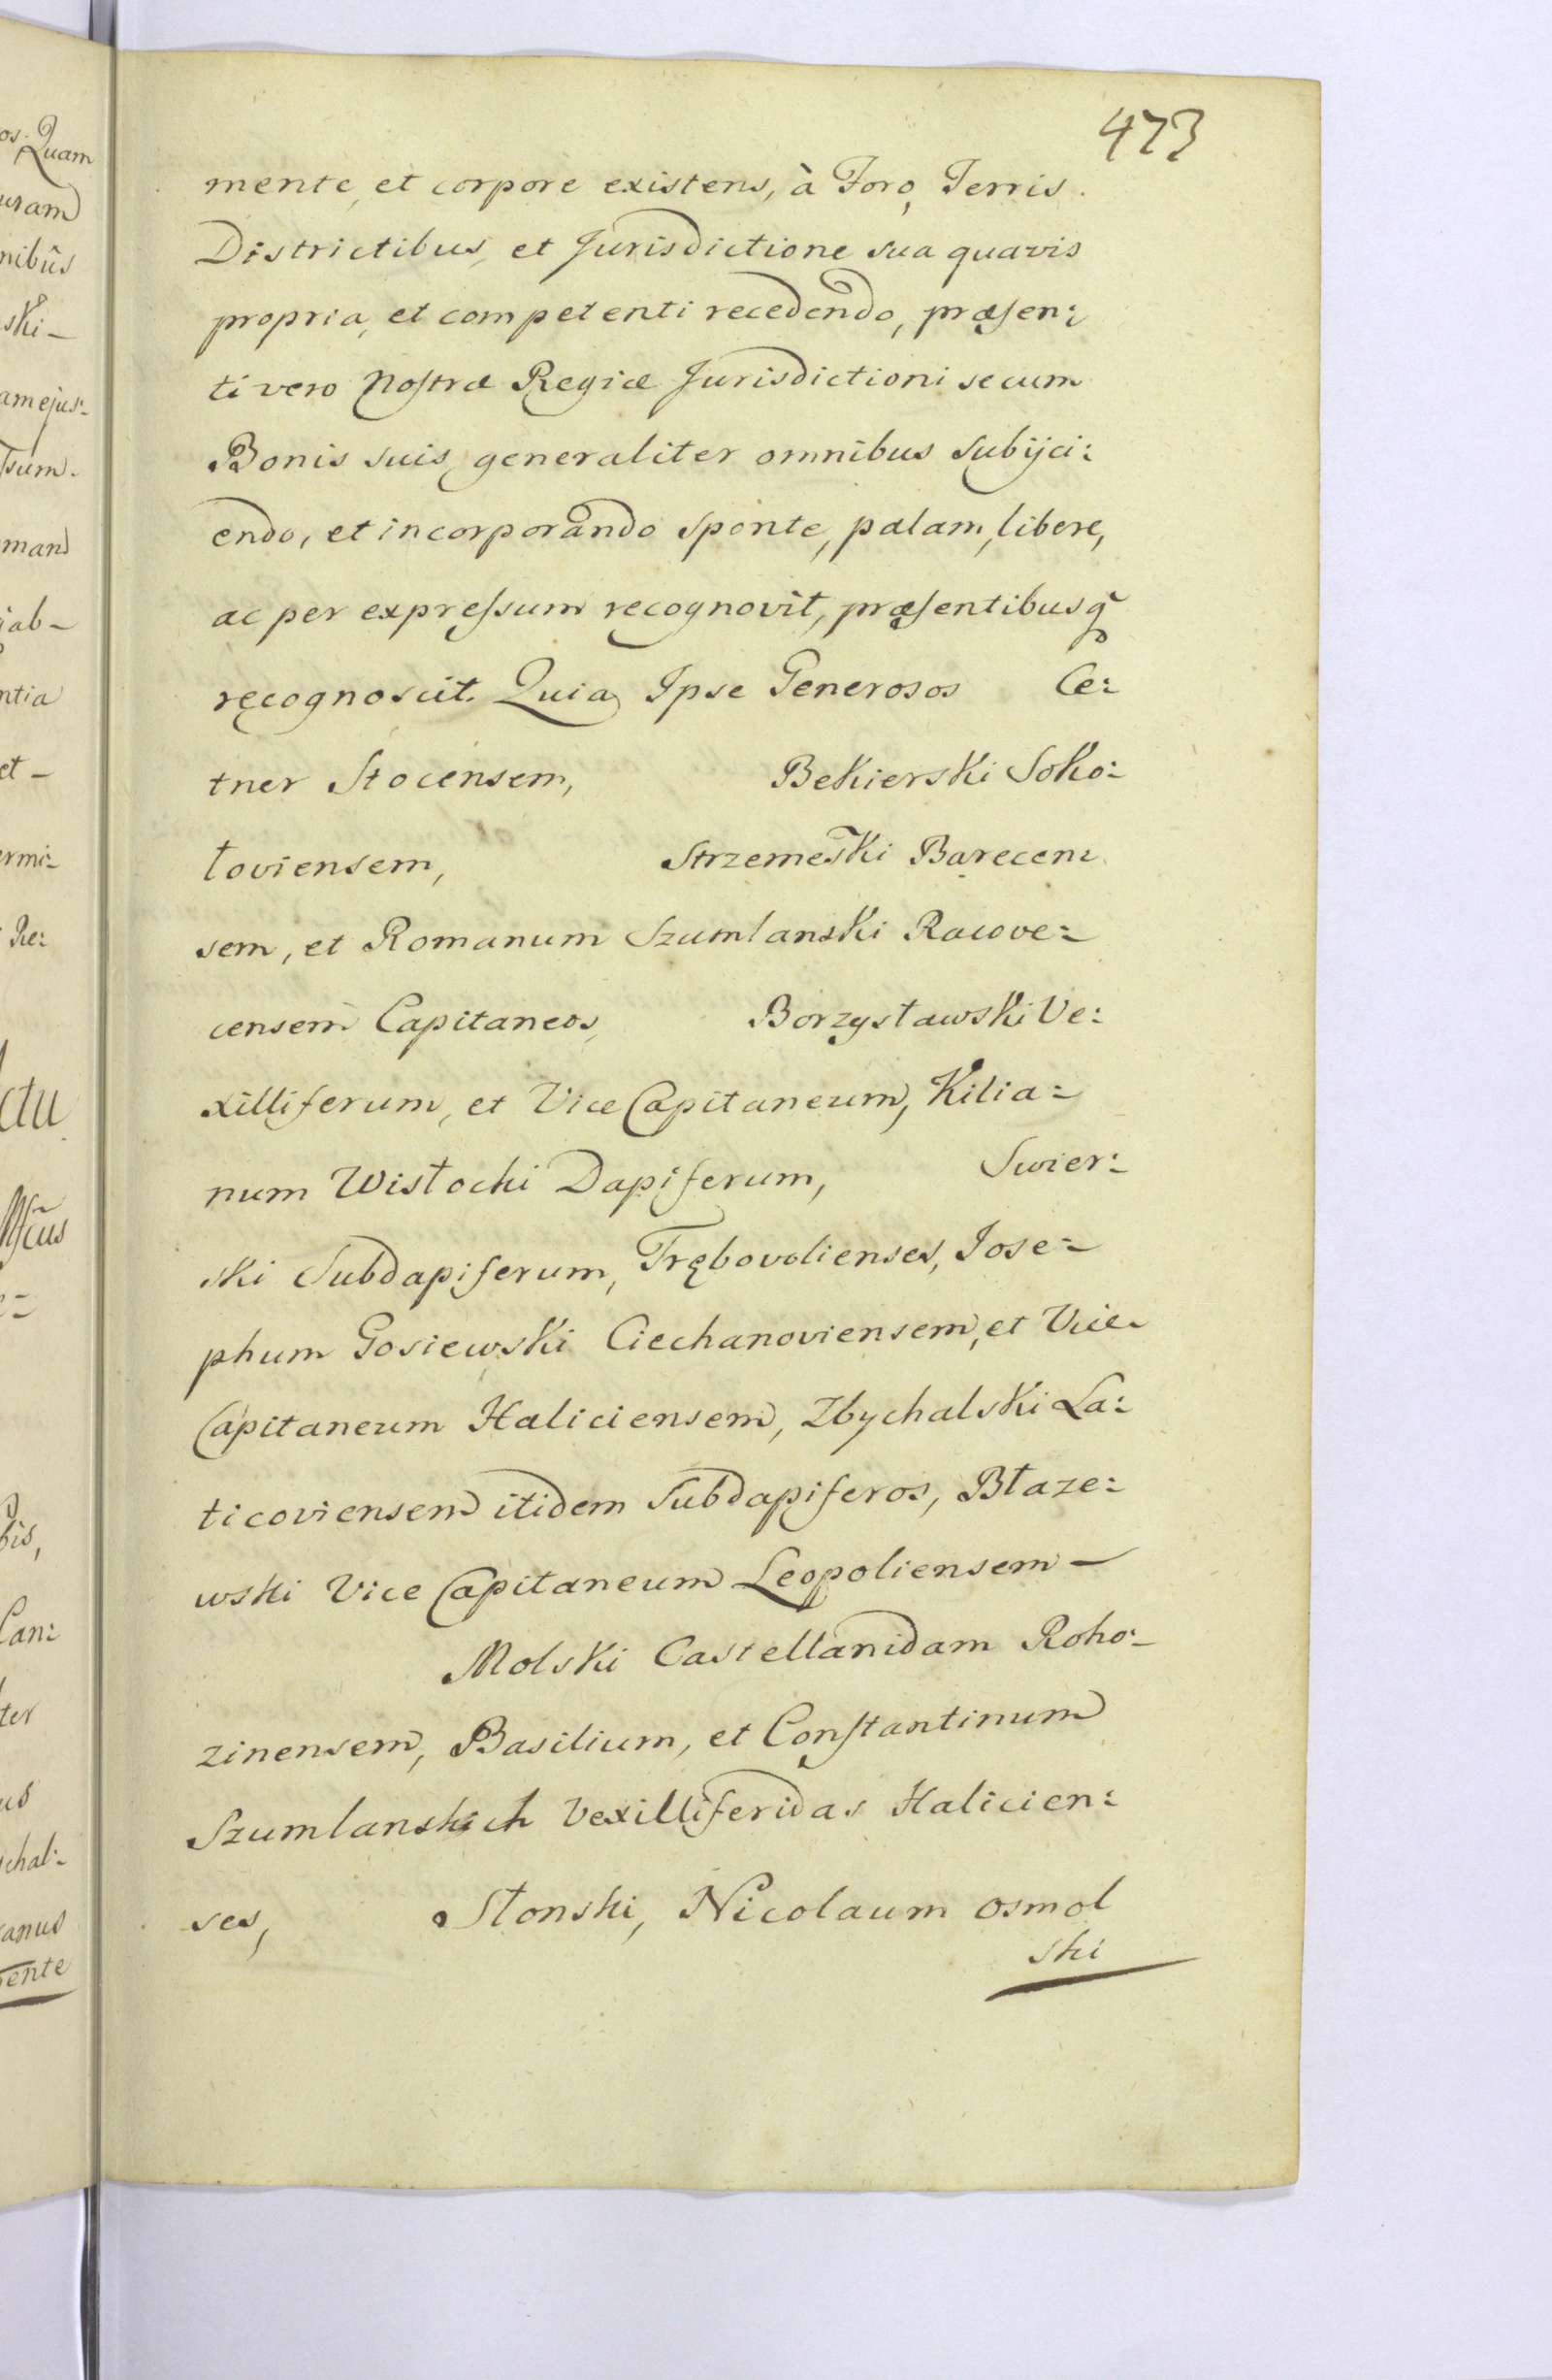 473
mente, et corpore existens, à Foro, Terris.
Districtibus, et Jurisdictione sua quavis
propria, et competenti recedendo, præsen:
ti vero Nostræ Regiæ Jurisdictioni se cum
Bonis suis, generaliter omnibus subijci:
endo, et incorporando sponte, palam, libere,
ac per expressum recognovit, præsentibusq̃
recognoscit. Quia Ipse Generosos Ce:
tner Stocensem, Bekierski Soko:
łoviensem, Strzemeski Barecen:
sem, et Romanum Szumlanski Racove:
censem Capitaneos, Borzysławski Ve:
xilliferum, et Vice Capitaneum, Kilia:
num Wisłocki Dapiferum, Swier:
ski Subdapiferum, Trębovolienses, Jose:
phum Gosiewski Ciechanoviensem, et Vice
Capitaneum Haliciensem, Zbychalski La:
ticoviensem itidem Subdapiferos, Błaze:
wski Vice Capitaneum Leopoliensem -
Molski Castellanidam Roho:
zinensem, Basilium, et Constantinum
Szumlanskich Vexilliferidas Halicien:
ses, Słonski, Nicolaum Osmol
ski
os. Quam
uram
nibûs
ski -
am ejus:
sum.
jab -
ntia
et -
ermi:
Re:
ctu
bis,
Can:
ter
us
chal:
anus
ente